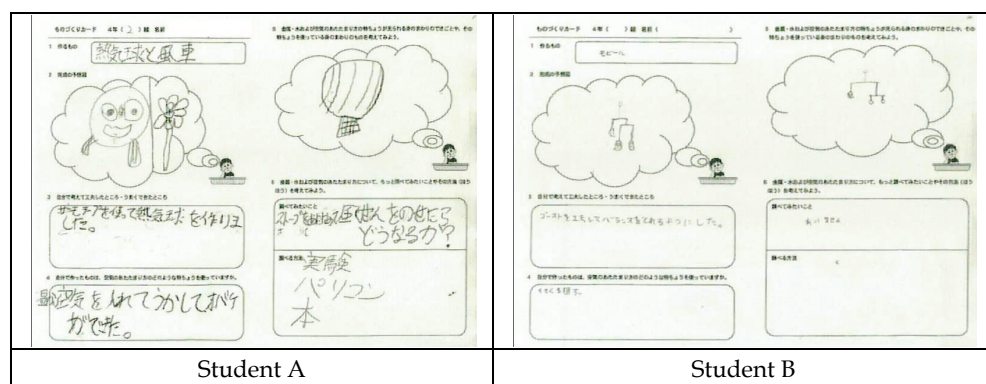 ものづくりカード 4年( 2 )組 名前
1 作るもの
熱気球と風車
2 完成の予想図
3 自分で考えて工夫したところ・うまくできたところ
サーモテープを使って熱気球を作りま
した。
4 自分で作ったものは、空気のあたたまり方のどのような特ちょうを使っていますか。
空気を入れてうかしてオバケ
ができた。
5 金属・水および空気のあたたまり方の特ちょうが見られる身のまわりのできごとや、その
特ちょうを使っている身のまわりのものを考えてみよう。
6 金属・水および空気のあたたまり方について、もっと調べてみたいことやその方法(ほう
ほう)を考えてみよう。
調べてみたいこと
どうなるか?
調べる方法
実験
パソコン
本
Student A
ものづくりカード 4年( )組 名前( )
1 作るもの
モビール
2 完成の予想図
3 自分で考えて工夫したところ・うまくできたところ
ゴーストを工夫してバランスをとれるようにした。
4 自分で作ったものは、空気のあたたまり方のどのような特ちょうを使っていますか。
5 金属・水および空気のあたたまり方の特ちょうが見られる身のまわりのできごとや、その
特ちょうを使っている身のまわりのものを考えてみよう。
6 金属・水および空気のあたたまり方について、もっと調べてみたいことやその方法(ほう
ほう)を考えてみよう。
調べてみたいこと
ありません
調べる方法
Student B